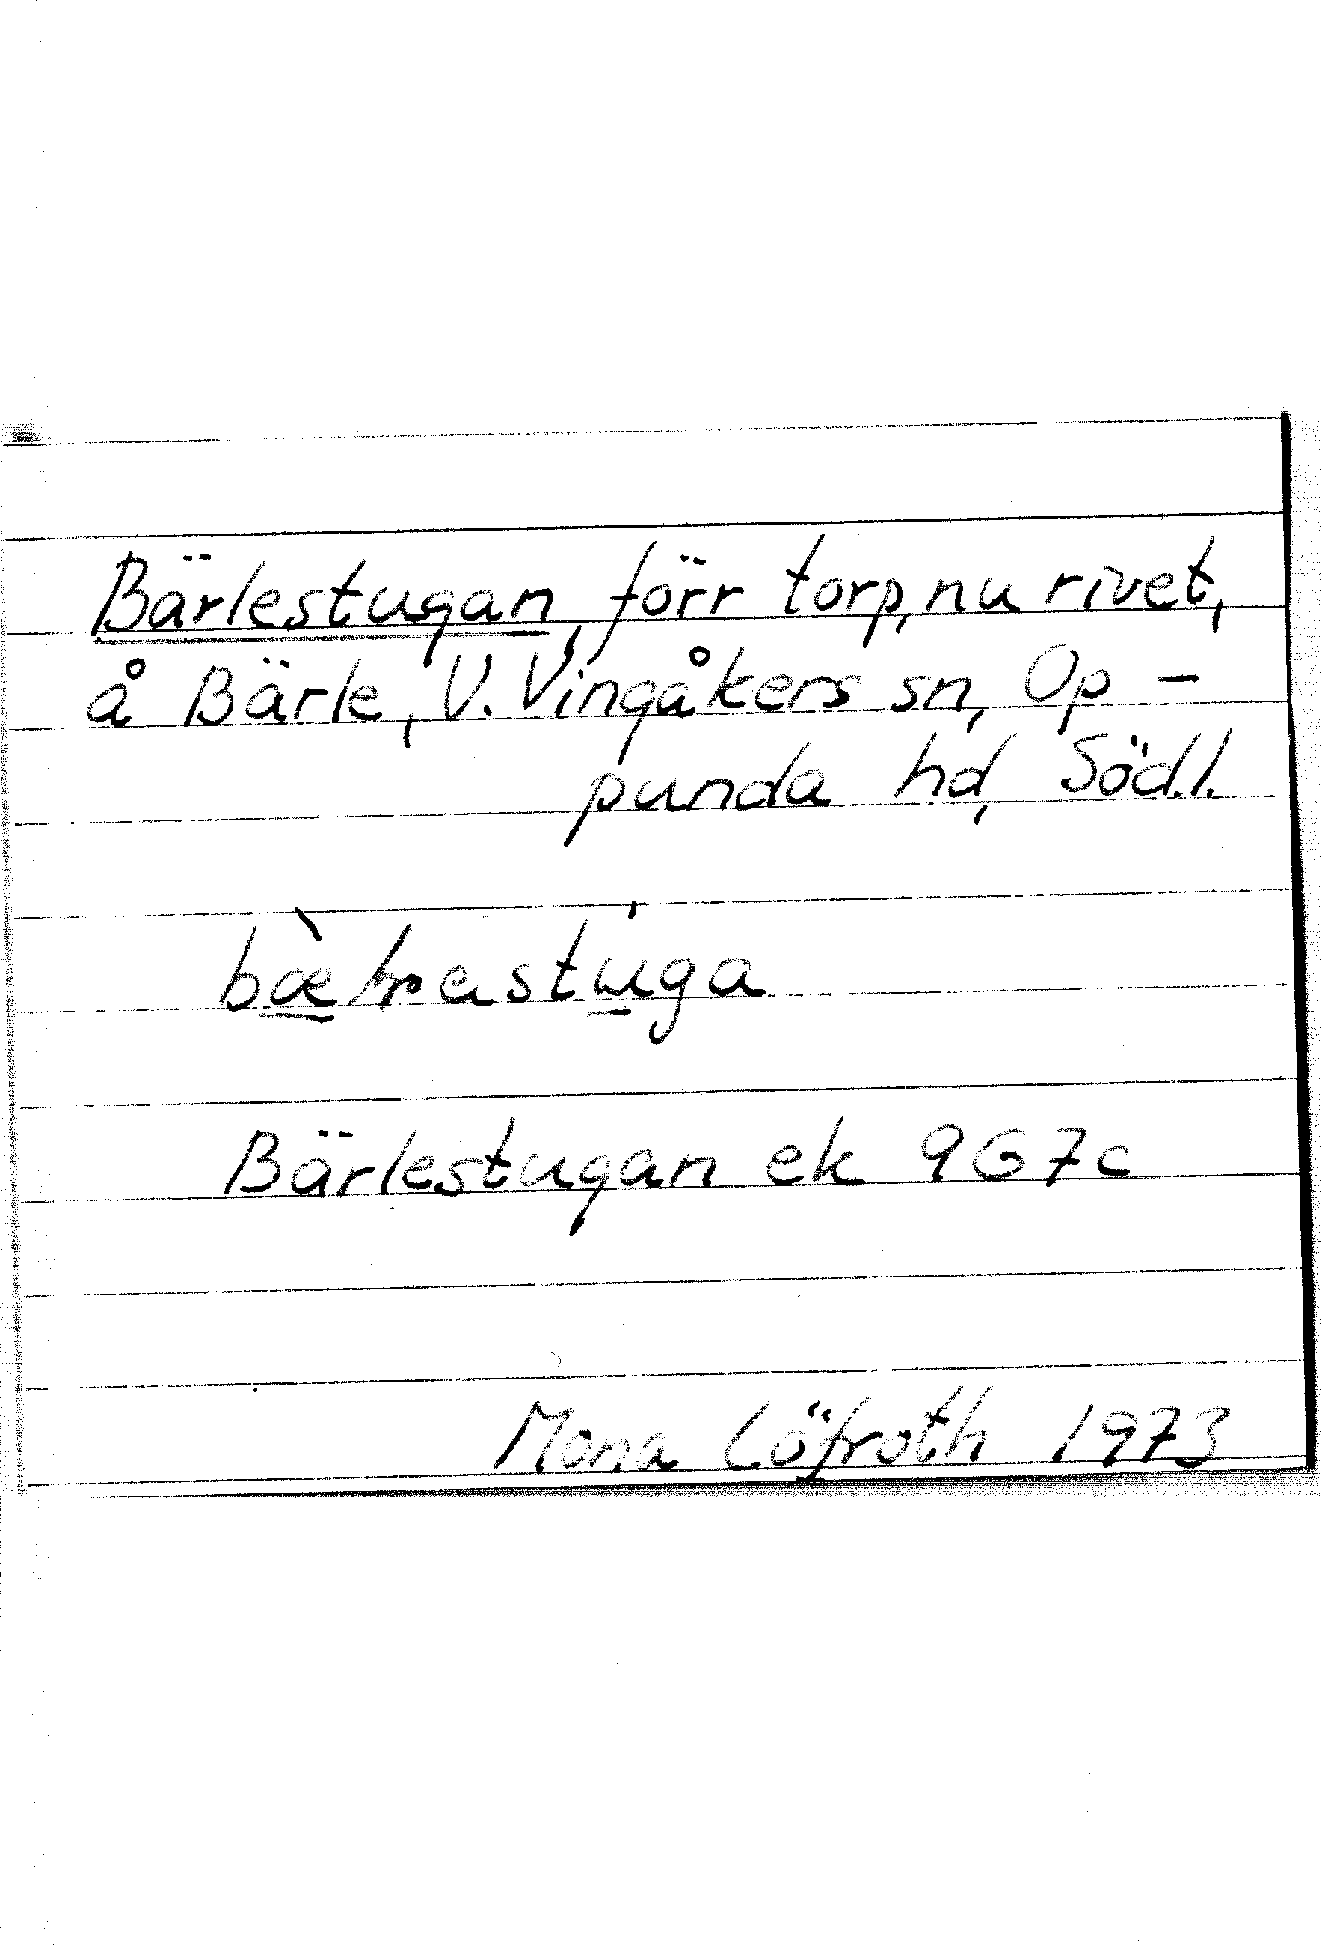 Bärlestugan, förr torp, nu rivet,
å Bärle, V. Vingåkers sn, Op-
punda hd, Söd.l.
Bärlestugan ek 9G7c
Mona Löfroth 1973